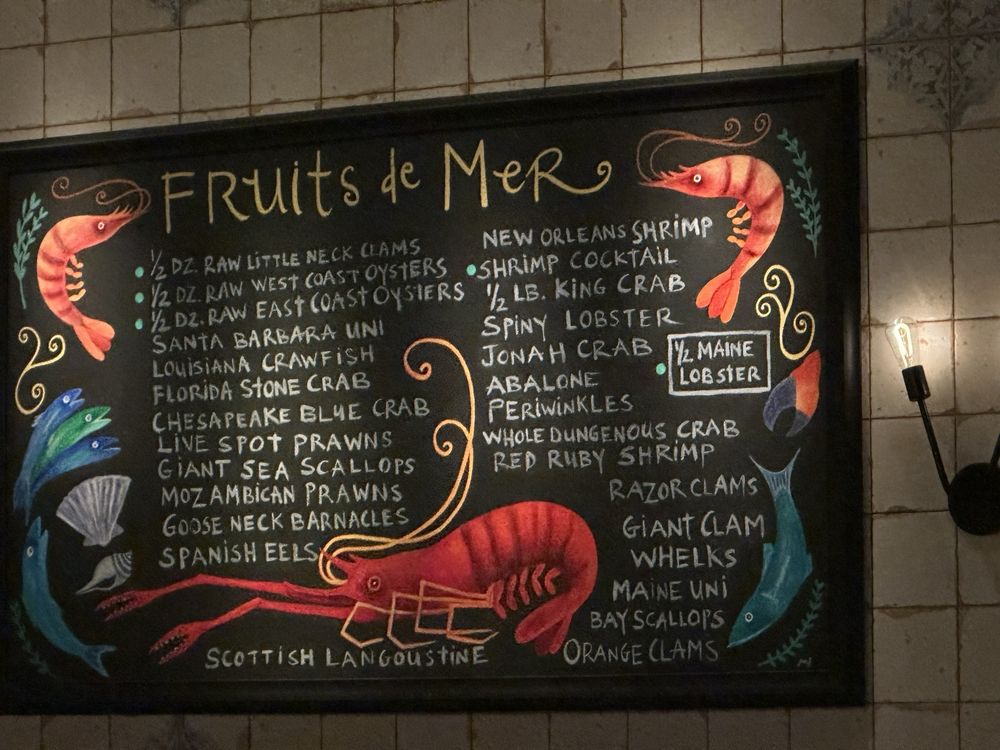 FRUits de MeR
1/2 DZ. RAW LITTLE NECK CLAMS
1/2 DZ. RAW WEST COAST OYSTERS
1/2 DZ. RAW EAST COAST OYSTERS
SANTA BARBARA UNI
LOUISIANA CRAWFISH
FLORIDA STONE CRAB
CHESAPEAKE BLUE CRAB
LIVE SPOT PRAWNS
GIANT SEA SCALLOPS
MOZAMBICAN PRAWNS
GOOSE NECK BARNACLES
SPANISH EELS
SCOTTISH LANGOUSTINE
NEW ORLEANS SHRIMP
SHRIMP COCKTAIL
1/2 LB. KING CRAB
SPINY LOBSTER
JONAH CRAB
1/2 MAINE
LOBSTER
ABALONE
PERIWINKLES
WHOLE DUNGENOUS CRAB
RED RUBY SHRIMP
RAZOR CLAMS
GIANT CLAM
WHELKS
MAINE UNI
BAY SCALLOPS
ORANGE CLAMS